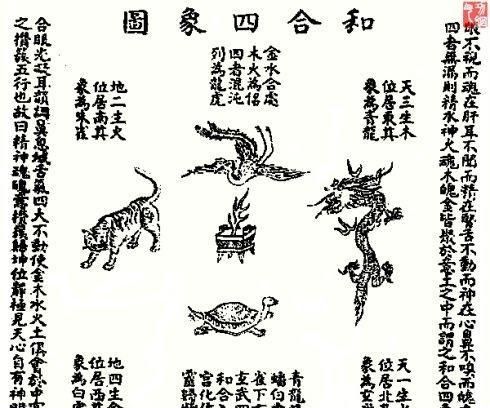 和合四象圖
眼不視而魂在肝耳不聞而精在腎舌不動而神在心鼻不嗅而
四者無漏則精水神火魂木魄金皆聚於意土之中而謂之和合四
天三生木
位居東其
象為青龍
金水合處
木火為侶
四者混沌
列為龍虎
地二生火
位居南其
象為朱雀
天一生
位居北
象為玄
青龍
雀下
玄武四
和合
宮化
地四生
位居西
象為白
合眼光凝耳韻調鼻息緘舌氣四大不動使金木水火土俱會於中宮
之攢簇五行也故曰精神魂魄意攢簇歸坤位靜極見天心自有神明